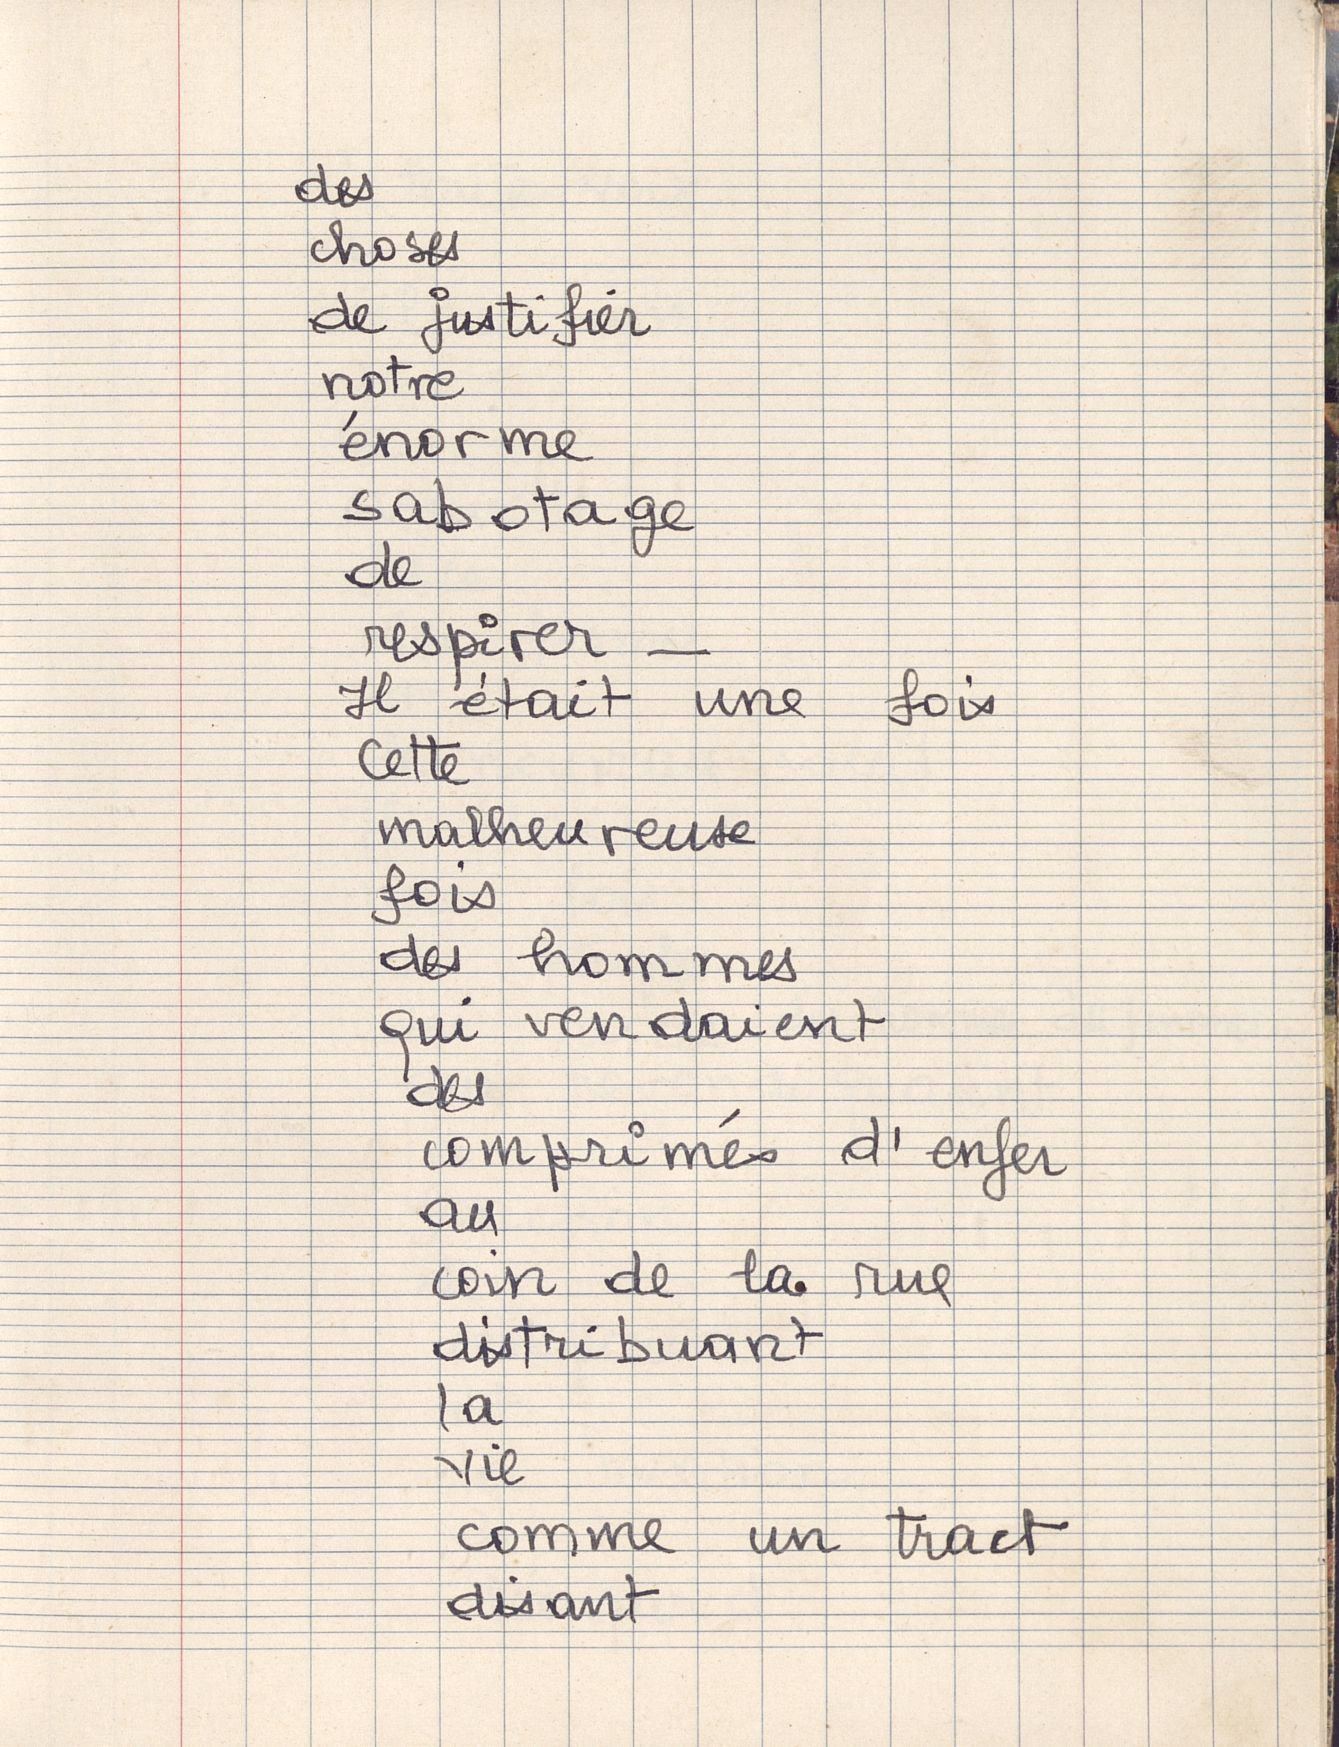 des
choses
de justifier
notre
énorme
sabotage
de
respirer —
Il était une fois
Cette
malheureuse
fois
des hommes
qui vendaient
des
comprimés d'enfer
au
coin de la rue
distribuant
la
vie
comme un tract
disant